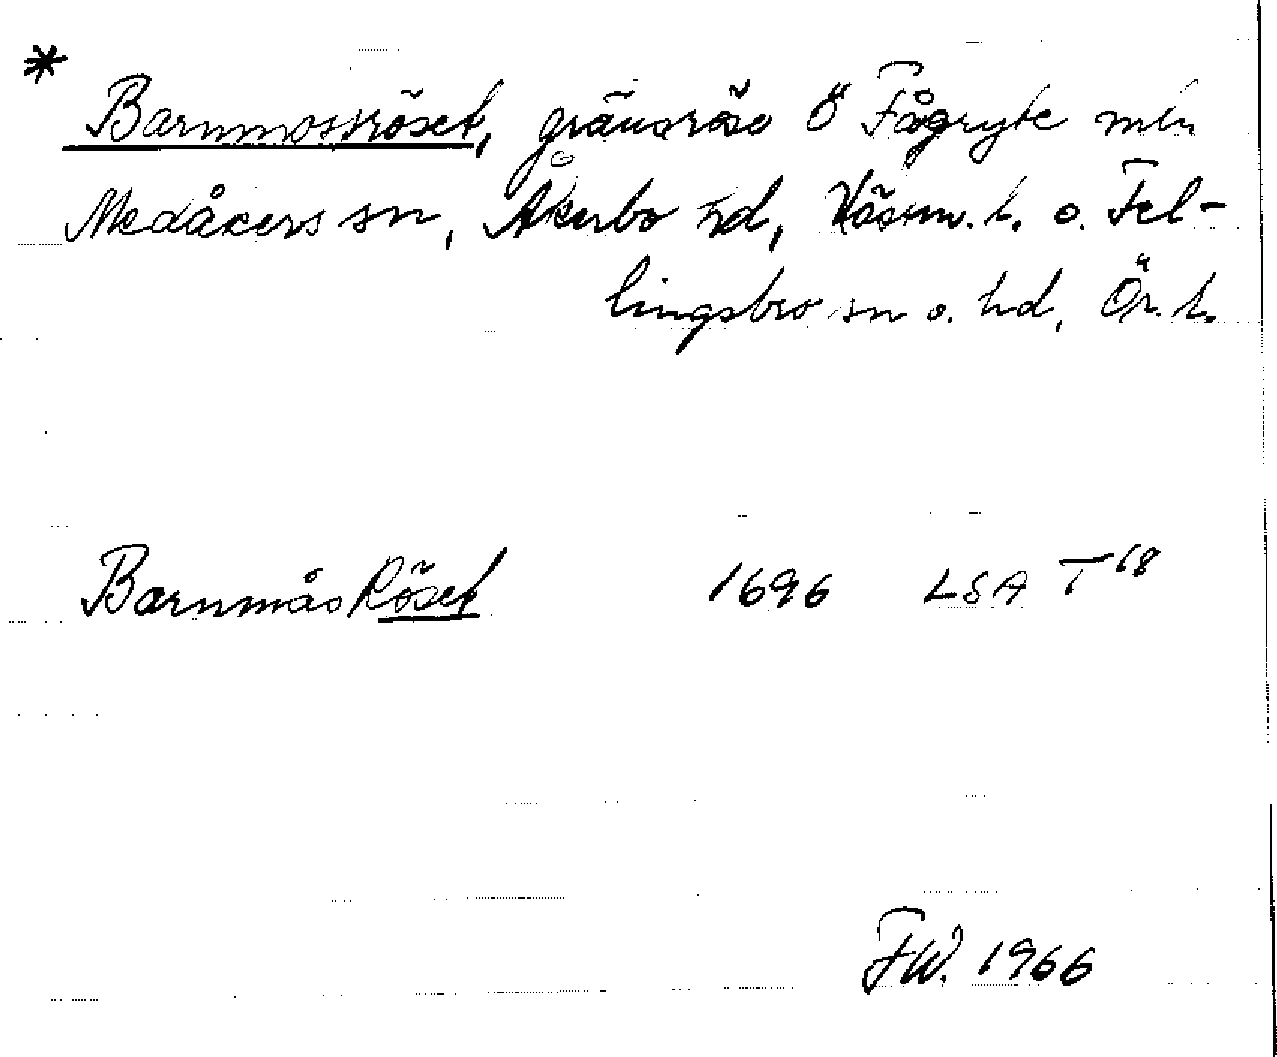 * Barnmossröset, gränsröse Ö Fågryte mln
Medåkers sn, Åkerbo hd, Västm. l. o. Fel-
lingsbro sn o. hd, Ör. l.
BarnmåsRöset 1696 LSA T 68
FW. 1966